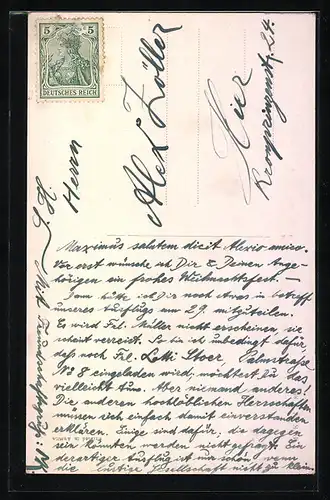 5 5
DEUTSCHES REICH
S. H.
Herrn
Alex Zöller
Hier
Kronprinzenstr. 24.
Maximus salutem dicit Alexio amico.
Vor erst wünsche ich Dir & Deinen Ange-
hörigen ein frohes Weihnachtsfest.
Dann hätte ich Dir noch etwas in betreff
unseres Ausflugs am 29. mitzuteilen.
Es wird Frl. Müller nicht erscheinen, sie
scheint verreist. So bin ich unbedingt dafür,
daß noch Frl. Lotti Stoer, Palmstraße
No 8 eingeladen wird, möchtest Du das
vielleicht tun. Aber niemand anderes!
Die anderen hochlöblichen Herrschaften
müssen sich einfach damit einverstanden
erklären. Einige sind dafür, die dagegen
sein könnten werden nicht gefragt. Ein
derartiger Ausflug ist nur schön wenn
die lustige Gesellschaft nicht zu klein.
Mit